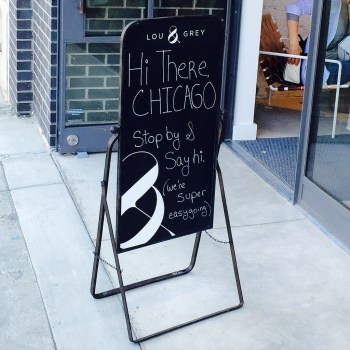 LOU & GREY
Hi There,
CHICAGO
Stop by &
Say hi.
(we're
super
easygoing)
&